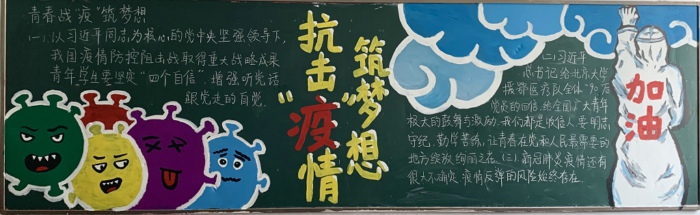 青春战疫"筑梦想
(一)以习近平同志为核心的党中央坚强领导下,
我国疫情防控阻击战取得重大战略成果
青年学生要坚定"四个自信",增强听党话
跟党走的自觉.
抗击"疫"情
筑"梦"想
(二)习近平
总书记给北京大学
援鄂医疗队全体"90后"
党员的回信,给全国广大青年
极大的鼓舞与激励,我们都是收信人,要明志
守纪,勤学苦练,让青春在党和人民最需要的
地方绽放绚丽之花.(三)新冠肺炎疫情还有
很大不确定,疫情反弹的风险始终存在.
加油